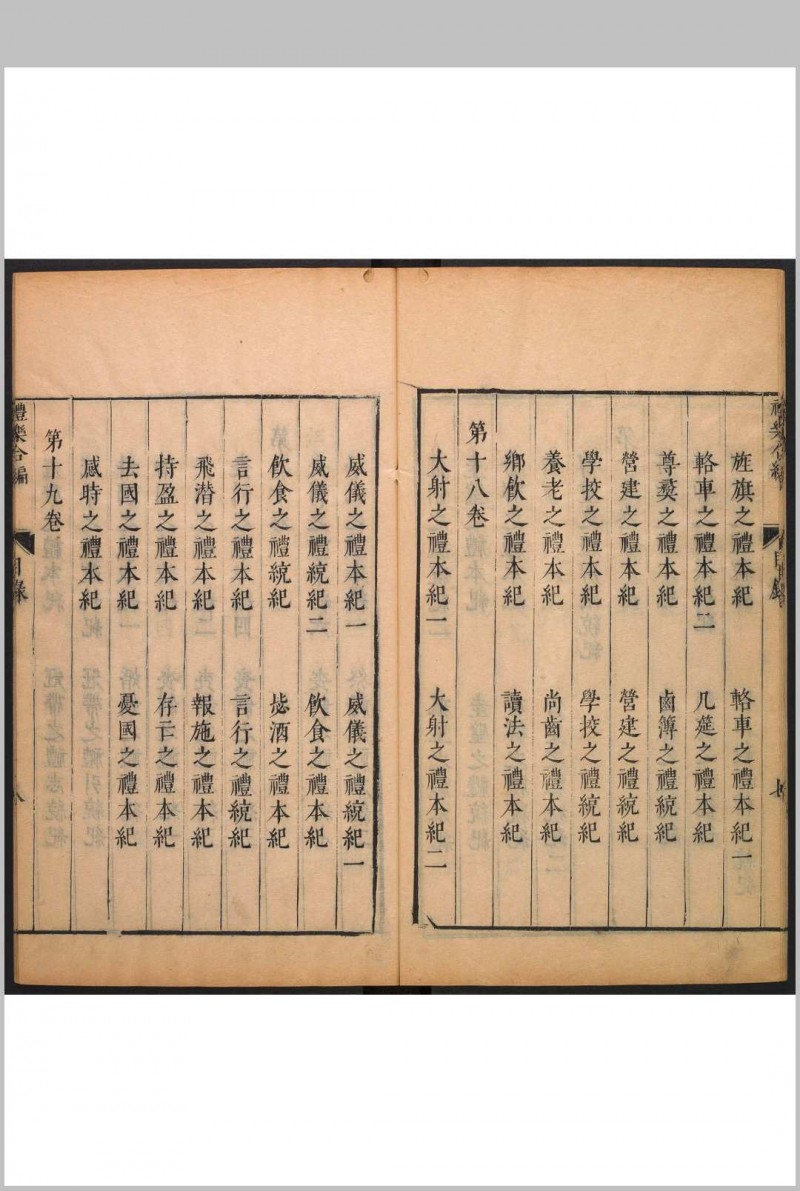 旌旗之禮本紀 輅車之禮本紀一
輅車之禮本紀二 几筵之禮本紀
尊彝之禮本紀 鹵簿之禮統紀
營建之禮本紀 營建之禮統紀
學挍之禮本紀 學挍之禮統紀
養老之禮本紀 尚齒之禮本紀
鄉飲之禮本紀 讀法之禮本紀
第十八卷
大射之禮本紀一 大射之禮本紀二
威儀之禮本紀一 威儀之禮統紀一
威儀之禮統紀二 飲食之禮本紀
飲食之禮統紀 毖酒之禮本紀
言行之禮本紀 言行之禮統紀
飛潛之禮本紀 報施之禮本紀
持盈之禮本紀 存亡之禮本紀
去國之禮本紀 憂國之禮本紀
感時之禮本紀
第十九卷
禮樂合編 目錄 八